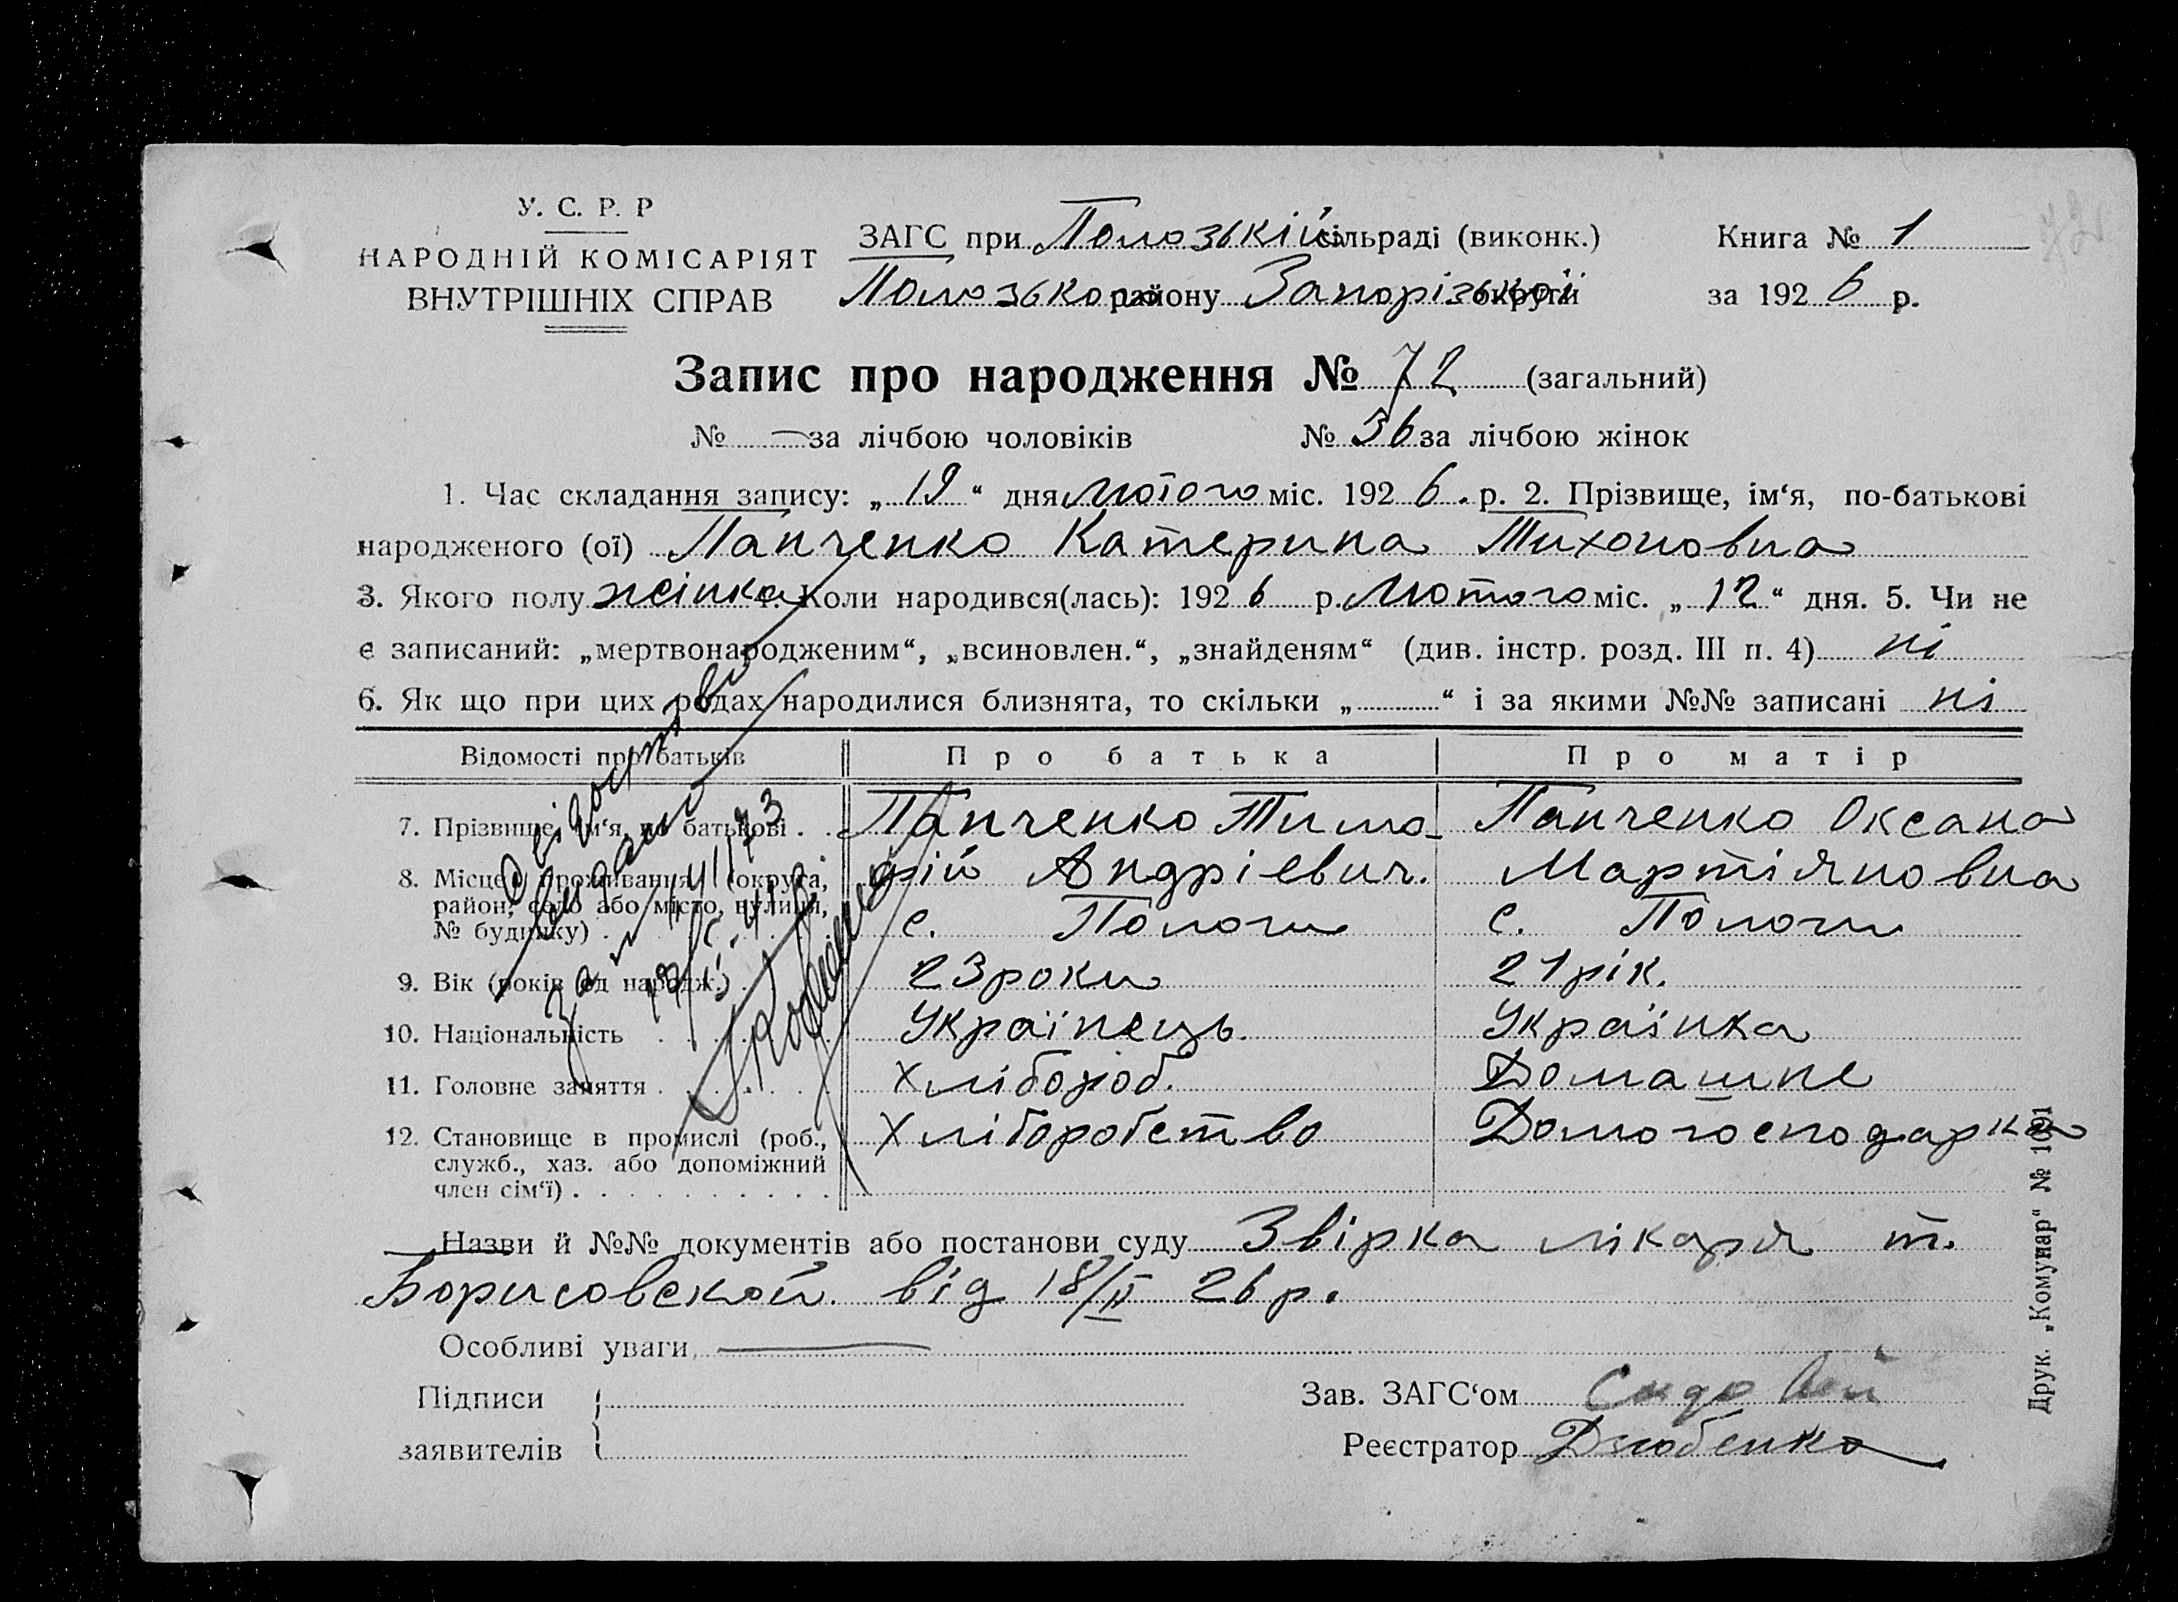 У. С. Р. Р
НАРОДНІЙ КОМІСАРІЯТ
ВНУТРІШНІХ СПРАВ
ЗАГС при Пологзькій сільраді (виконк.)
Пологзького району Запорізької округи
Книга № 1
за 1926 р.
Запис про народження № 72 (загальний)
№ — за лічбою чоловіків № 36 за лічбою жінок
1. Час складання запису: „19“ дня Лютого міс. 1926. р. 2. Прізвище, ім‘я, по-батькові
народженого (ої) Панченко Катерина Тихоновна
3. Якого полу жінка 4. Коли народився(лась): 1926 р. Лютого міс. „12“ дня. 5. Чи не
є записаний: „мертвонародженим“, „всиновлен.“, „знайденям“ (див. інстр. розд. III п. 4) ні
6. Як що при цих родах народилися близнята, то скільки „ “ і за якими №№ записані ні
Відомості про батьків Про батька Про матір
7. Прізвище, ім‘я, по батькові . . Панченко Тимо- Панченко Оксана
8. Місце проживання (округа, фій Андрієвич. Мартіяновна
район, село або місто, вулиця, с. Пологи с. Пологи
№ будинку) .
9. Вік (років од народж.) . 23 роки 21 рік.
10. Національність . Українець. Українка
11. Головне заняття . Хлібороб. Домашнє
12. Становище в промислі (роб., Хліборобство Домогосподарка
служб., хаз. або допоміжний
член сім‘ї) .
Назви й №№ документів або постанови суду Звірка лікаря т.
Борисовской. від 18/II 26 р.
Особливі уваги —
Підписи
заявителів
Зав. ЗАГС‘ом
Реєстратор Дзюбенко
Друк. „Комунар“ № 1091